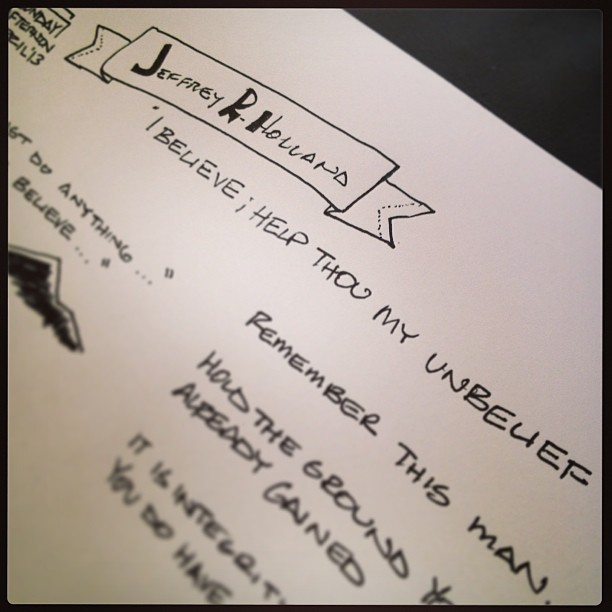 JEFFREY R. HOLLAND
"I BELIEVE; HELP THOU MY UNBELIEF
DO ANYTHING..."
BELIEVE..."
REMEMBER THIS MAN.
HOLD THE GROUND
ALREADY GAINED
IT IS
YOU DO HAVE